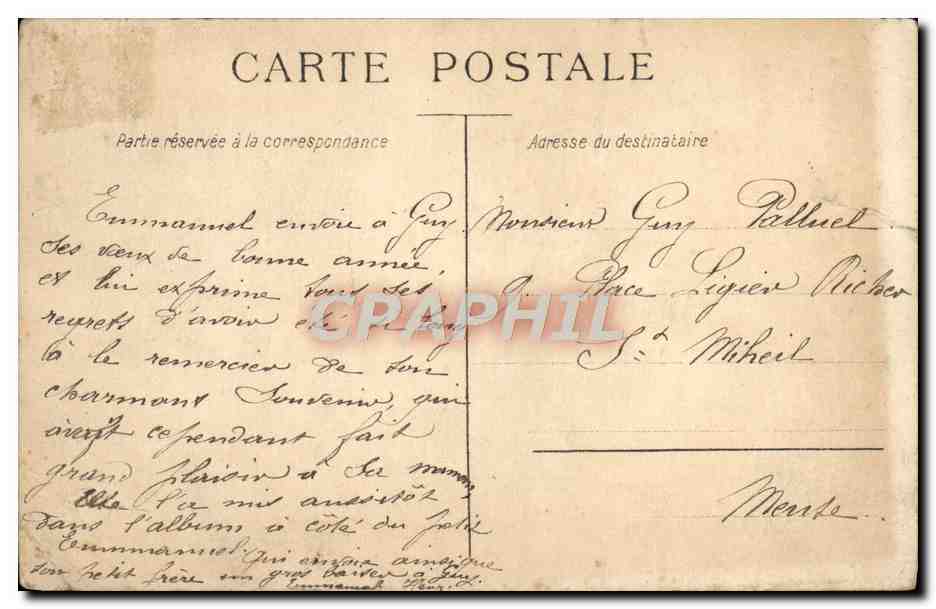 CARTE POSTALE
Partie réservée à la correspondance
Emmanuel envoie à Guy
ses vœux de bonne année,
et lui exprime tous ses
regrets d'avoir été si long
à le remercier de son
charmant Souvenir, qui
avait cependant fait
grand plaisir à sa maman,
elle l'a mis aussitôt
dans l'album à côté du petit
Emmanuel. qui envoie ainsi que
son petit frère un gros baiser à Guy.
Emmanuel Henri
Adresse du destinataire
Monsieur Guy Palluel
Place Ligier Richer
St Miheil
Meuse
CPAPHIL